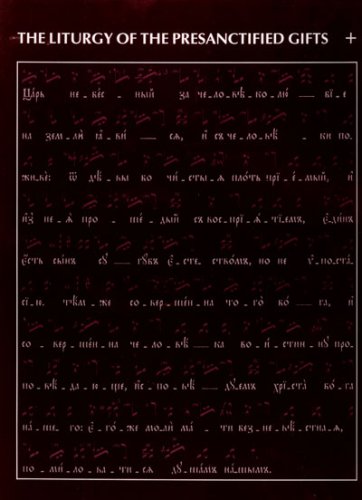 THE LITURGY OF THE PRESANCTIFIED GIFTS +
Ца́рь не_бе́с_ный за че_ло_вѣ_ко_лю́ _ бі_е
на зем_лѝ ꙗ҆_ви́ _ сѧ, и҆ съ че_ло_вѣ́ _ ки по_
жи_вѐ: ѿ дв҃_вы бо чи́_сты_ѧ пло́ть прї_е́_мый, и҆
и҆з̾ не_ѧ̀ про_ше́_дый съ вос_прї_ѧ́_ті_емъ, є҆_ди́нъ
є҆́сть сы́нъ су_гу́бъ є҆_сте_ство́мъ, но не ѵ҆_по_ста́_
сі_ю. тѣ́м_же со_вер_ше́н_на то_го̀ бо́_га, и҆
со_вер_ше́н_на че_ло_вѣ́ _ ка во_и́_стин_ну про_
по_вѣ́_да_ю_ще, и҆с_по_вѣ́ _ ду_емъ хрі_ста̀ бо́_га
на́_ше_го: є҆_го́_же мо_лѝ ма́_ти без_не_вѣ́ст_на_ѧ,
по_ми́_ло_ва_ти_сѧ ду_ша́мъ на́_шымъ.